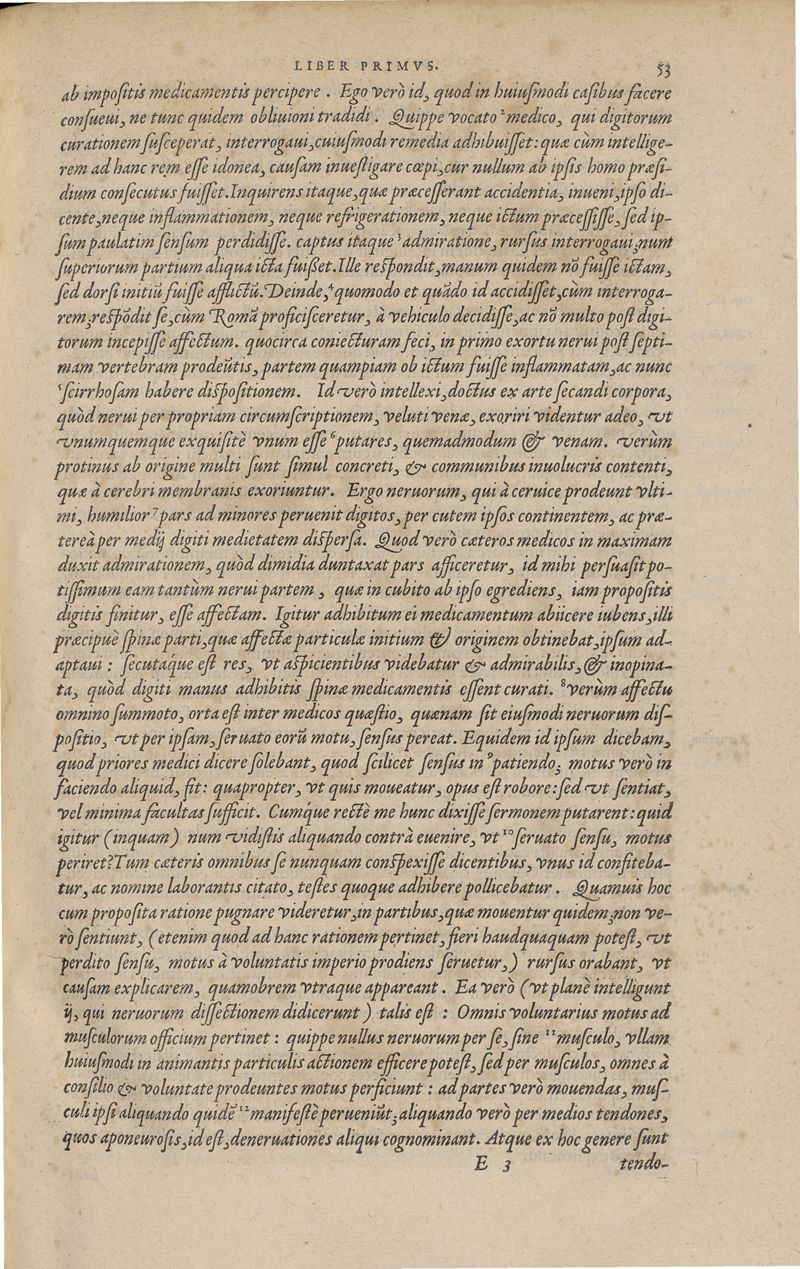 LIBER PRIMVS. 53
ab impoſitis medicamentis percipere . Ego verò id, quod in huiuſmodi caſibus facere
conſueui, ne tunc quidem obliuioni tradidi . Quippe vocato ²medico, qui digitorum
curationem ſuſceperat, interrogaui,cuiuſmodi remedia adhibuiſſet: quæ cùm intellige-
rem ad hanc rem eſſe idonea, cauſam inueſtigare cœpi,cur nullum ab ipſis homo præſi-
dium conſecutus fuiſſet.Inquirens itaque,quæ præceſſerant accidentia, inueni,ipſo di-
cente,neque inflammationem, neque refrigerationem, neque ictum præceſſiſſe, ſed ip-
ſum paulatim ſenſum perdidiſſe. captus itaque ³admiratione, rurſus interrogaui,num
ſuperiorum partium aliqua icta fuißet.Ille reſpondit,manum quidem nõ fuiſſe ictam,
ſed dorſi initiũ fuiſſe afflictũ. Deinde,⁴quomodo et quãdo id accidiſſet,cùm interroga-
rem,reſpõdit ſe,cùm Romã proficiſceretur, à vehiculo decidiſſe,ac nõ multo poſt digi-
torum incepiſſe affectum. quocirca coniecturam feci, in primo exortu nerui poſt ſepti-
mam vertebram prodeũtis, partem quampiam ob ictum fuiſſe inflammatam,ac nunc
⁵ſcirrhoſam habere diſpoſitionem. Id verò intellexi,doctus ex arte ſecandi corpora,
quòd nerui per propriam circumſcriptionem, veluti venæ, exoriri videntur adeo, vt
vnumquemque exquiſitè vnum eſſe ⁶putares, quemadmodum & venam. verùm
protinus ab origine multi ſunt ſimul concreti, & communibus inuolucris contenti,
quæ à cerebri membranis exoriuntur. Ergo neruorum, qui à ceruice prodeunt vlti-
mi, humilior ⁷pars ad minores peruenit digitos, per cutem ipſos continentem, ac præ-
tereà per medij digiti medietatem diſperſa. Quod verò cæteros medicos in maximam
duxit admirationem, quòd dimidia duntaxat pars afficeretur, id mihi perſuaſit po-
tiſſimum eam tantùm nerui partem , quæ in cubito ab ipſo egrediens, iam propoſitis
digitis finitur, eſſe affectam. Igitur adhibitum ei medicamentum abiicere iubens,illi
præcipuè ſpinæ parti,quæ affectæ particulæ initium & originem obtinebat,ipſum ad-
aptaui : ſecutáque eſt res, vt aſpicientibus videbatur & admirabilis, & inopina-
ta, quòd digiti manus adhibitis ſpinæ medicamentis eſſent curati. ⁸verùm affectu
omnino ſummoto, orta eſt inter medicos quæſtio, quænam ſit eiuſmodi neruorum diſ-
poſitio, vt per ipſam,ſeruato eorũ motu, ſenſus pereat. Equidem id ipſum dicebam,
quod priores medici dicere ſolebant, quod ſcilicet ſenſus in ⁹patiendo, motus verò in
faciendo aliquid, fit: quapropter, vt quis moueatur, opus eſt robore:ſed vt ſentiat,
vel minima facultas ſufficit. Cumque rectè me hunc dixiſſe ſermonem putarent: quid
igitur (inquam) num vidiſtis aliquando contrà euenire, vt ¹⁰ſeruato ſenſu, motus
periret?Tum cæteris omnibus ſe nunquam conſpexiſſe dicentibus, vnus id confiteba-
tur, ac nomine laborantis citato, teſtes quoque adhibere pollicebatur . Quamuis hoc
cum propoſita ratione pugnare videretur,in partibus,quæ mouentur quidem,non ve-
rò ſentiunt, (etenim quod ad hanc rationem pertinet, fieri haudquaquam poteſt, vt
perdito ſenſu, motus à voluntatis imperio prodiens ſeruetur,) rurſus orabant, vt
cauſam explicarem, quamobrem vtraque appareant . Ea verò (vt planè intelligunt
ij, qui neruorum diſſectionem didicerunt ) talis eſt : Omnis voluntarius motus ad
muſculorum officium pertinet : quippe nullus neruorum per ſe, ſine ¹¹muſculo, vllam
huiuſmodi in animantis particulis actionem efficere poteſt, ſed per muſculos, omnes à
conſilio & voluntate prodeuntes motus perficiunt : ad partes verò mouendas, muſ-
culi ipſi aliquando quidẽ ¹²manifeſtè perueniũt,aliquando verò per medios tendones,
quos aponeuroſis,id eſt,deneruationes aliqui cognominant. Atque ex hoc genere ſunt
E 3 tendo-